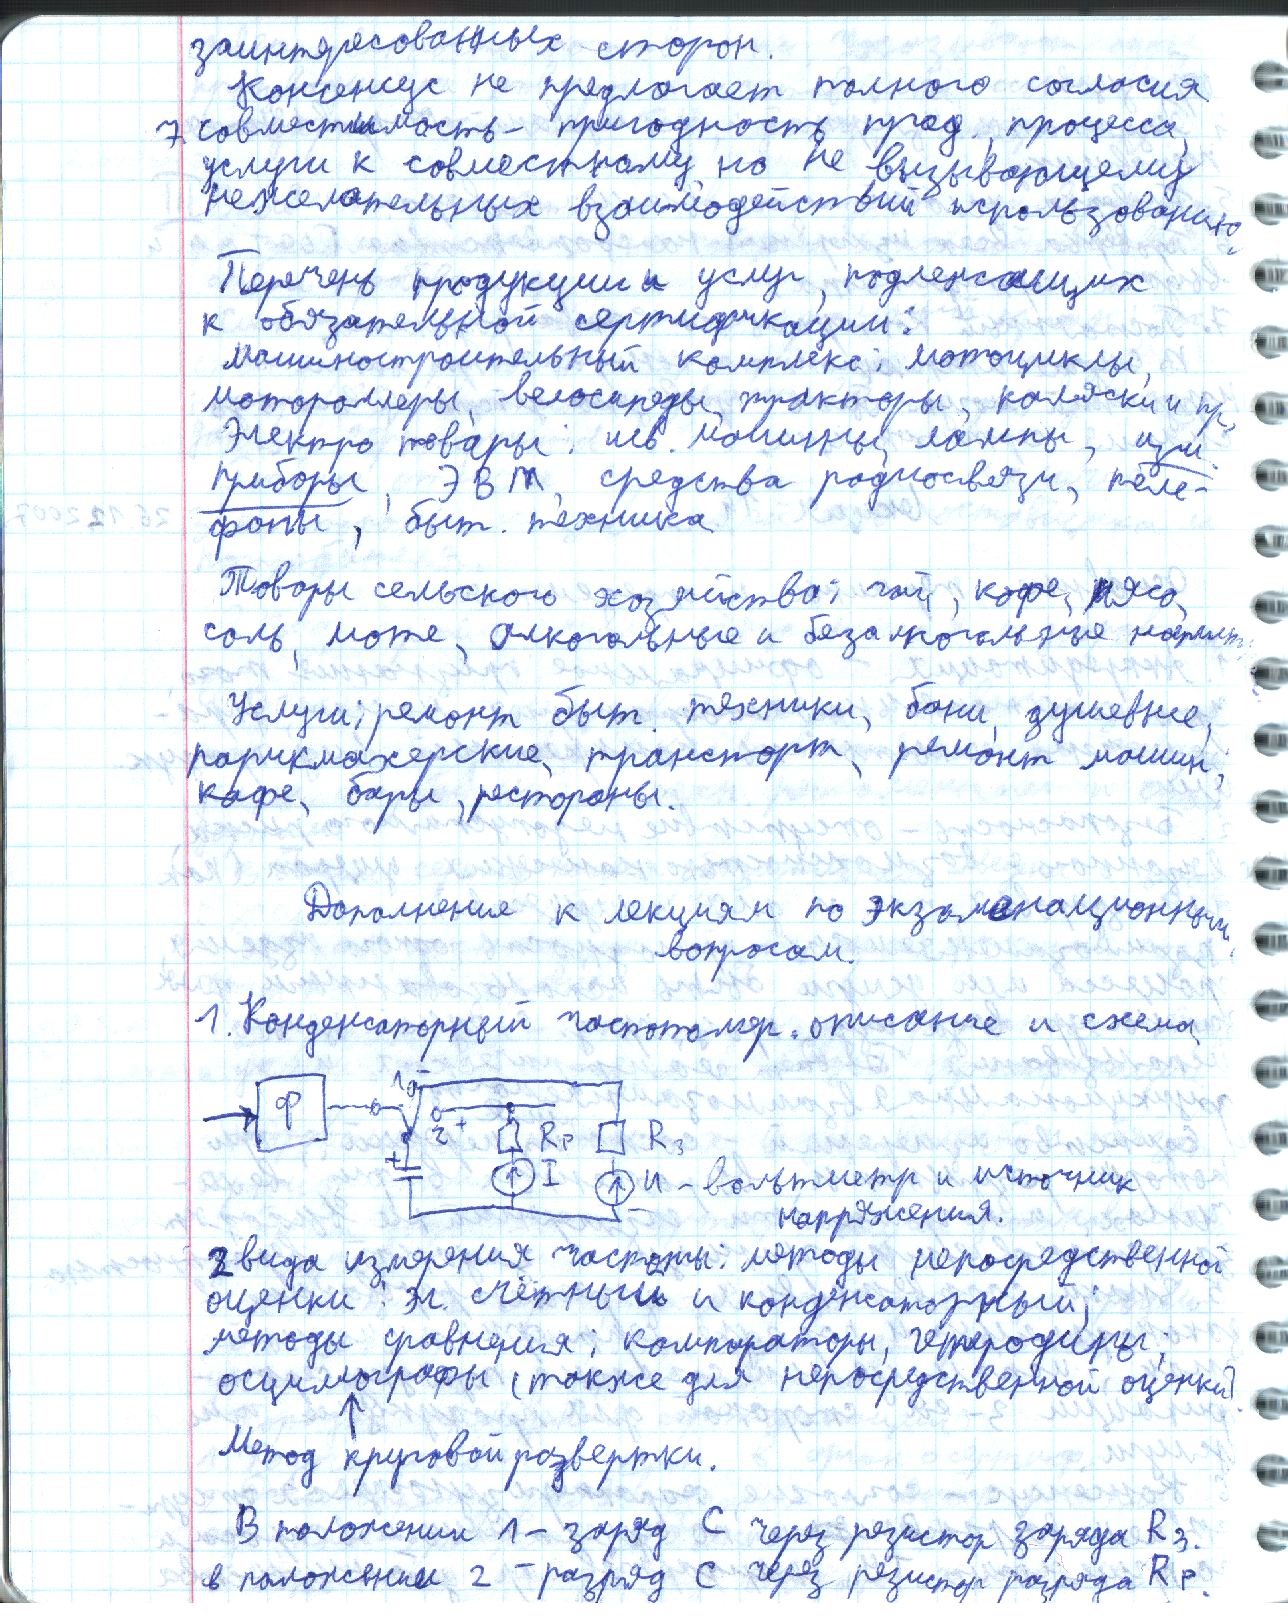 заинтересованных сторон.
Консенсус не предлогает полного согласия
7. совместимость - пригодность прод., процесса,
услуги к совместному, но не вызывающему
нежелательных взаимодействий использованию.
Перечень продукции и услуг, подлежащих
к обязательной сертификации:
Машиностроительный комплекс: мотоциклы,
мотороллеры, велосипеды, тракторы, коляски и пр.
Электро товары: шв. машины, лампы, изм.
приборы, ЭВМ, средства радиосвязи, теле-
фоны, быт. техника
Товары сельского хозяйства: чай, кофе, мясо,
соль, може, алкогольные и безалкогольные напитки
Услуги: ремонт быт. техники, бани, душевые,
парикмахерские, транспорт, ремонт машин,
кафе, бары, рестораны.
Дополнение к лекциям по экзаменационным
вопросам.
1. Конденсаторный частотомер. описание и схема
Ф
1
-
2
+
Rр
Rз
+
I
U - вольтметр и источник
-
напряжения.
2 вида измерения частоты: методы непосредственной
оценки: эл. счётный и конденсаторный;
методы сравнения: компараторы, гетеродины;
осцилографы (также для непосредственной оценки)
Метод круговой развертки.
В положении 1 - заряд С через резистор заряда Rз.
в положении 2 - разряд С через резистор разряда Rр.